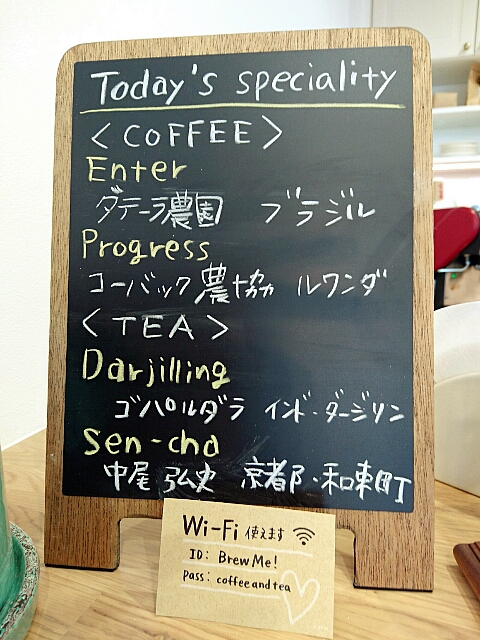 Today's speciality
<COFFEE>
Enter
ダテーラ農園 ブラジル
Progress
コーパック農協 ルワンダ
<TEA>
Darjilling
ゴパルダラ インド・ダージリン
Sen-cha
中尾弘史 京都・和束町
Wi-Fi 使えます
ID: BrewMe!
Pass: coffeeandtea